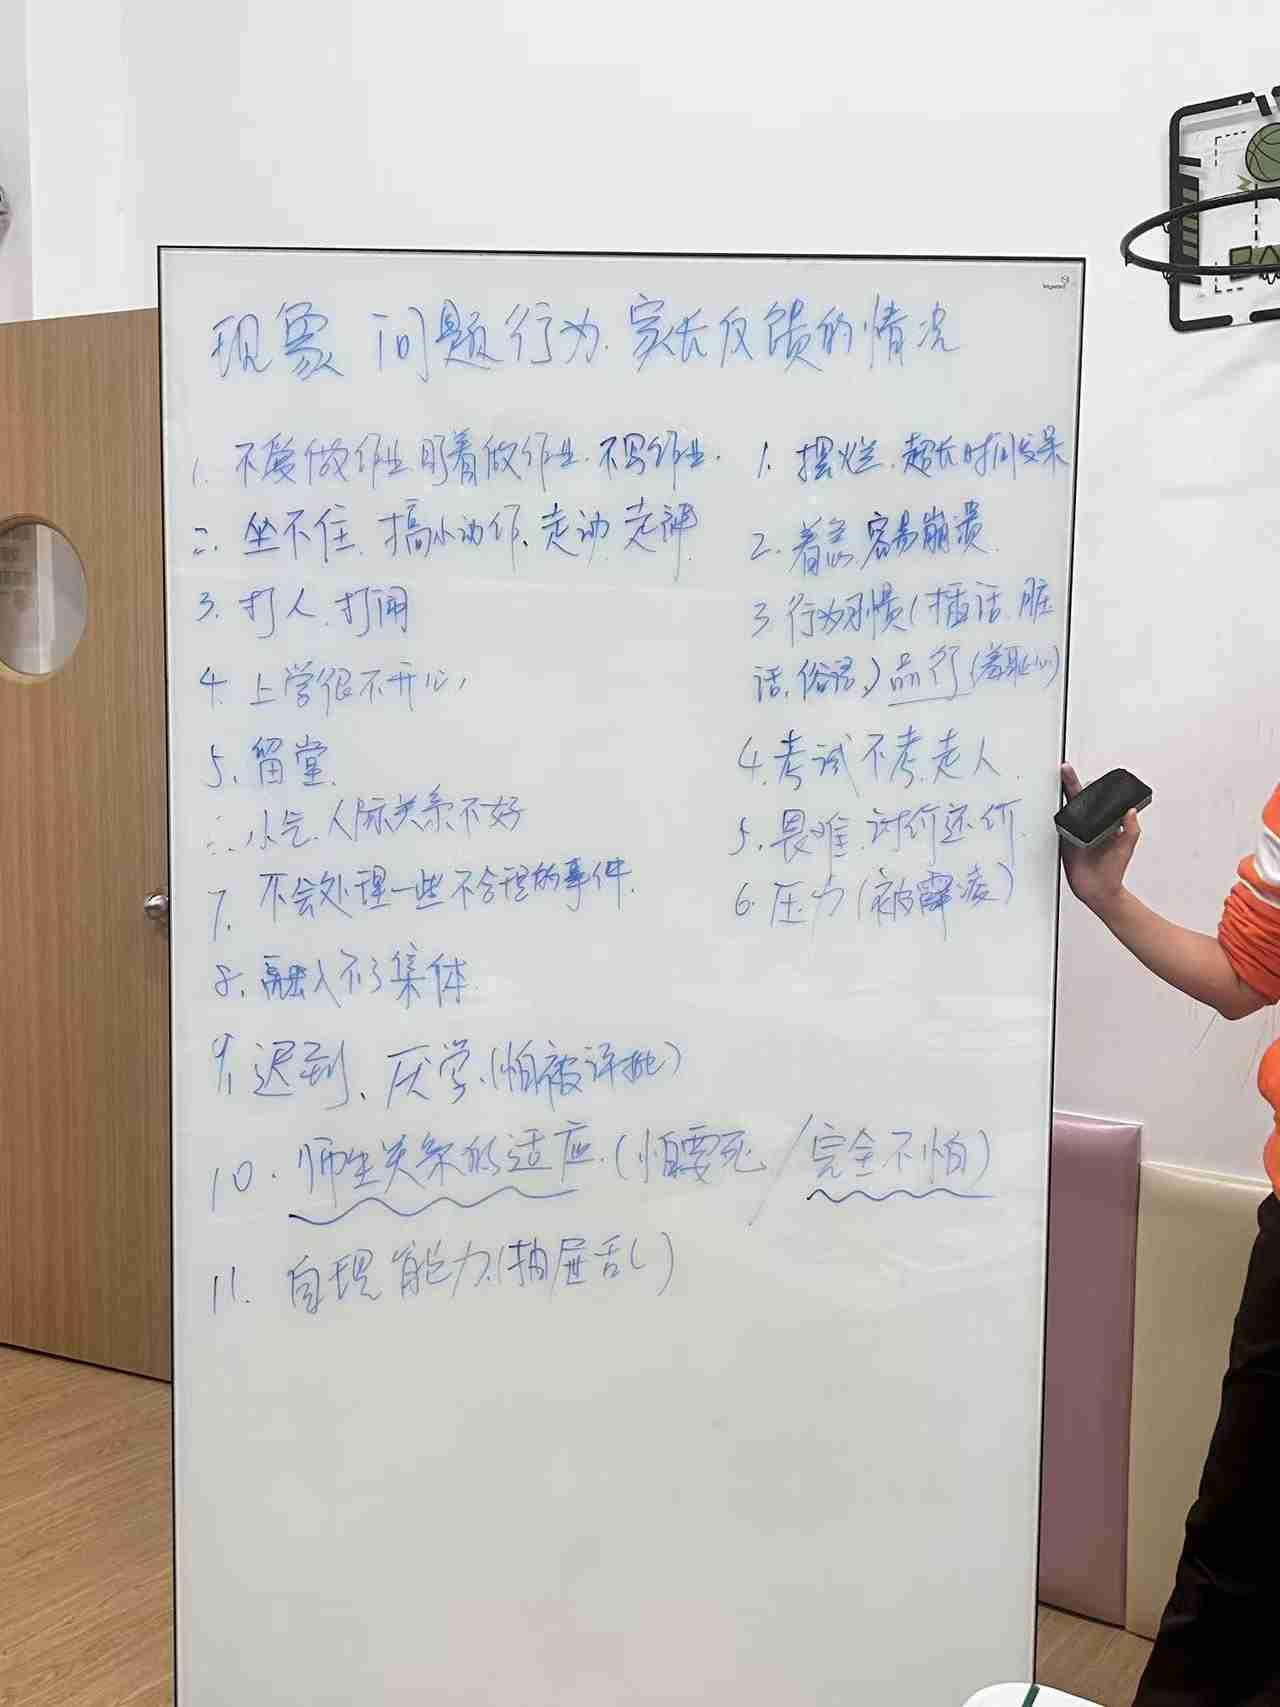 现象 问题行为.家长反馈的情况
1. 不爱做作业 盯着做作业.不写作业.
二. 坐不住.搞小动作、走动.走神.
3. 打人.打闹
4. 上学很不开心,
5. 留堂.
小气.人际关系不好
7. 不会处理一些不合理的事件.
8. 融入不了集体.
9. 迟到、厌学.(怕被评批)
10. 师生关系的适应.(怕要死/完全不怕)
11. 自理能力.(抽屉乱)
1. 摆烂.超长时间发呆
2. 着急.容易崩溃.
3. 行为习惯(插话.脏
话.俗语.)品行(羞耻心)
4. 考试不考.走人.
5. 畏难.讨价还价.
6. 压力(被霸凌)